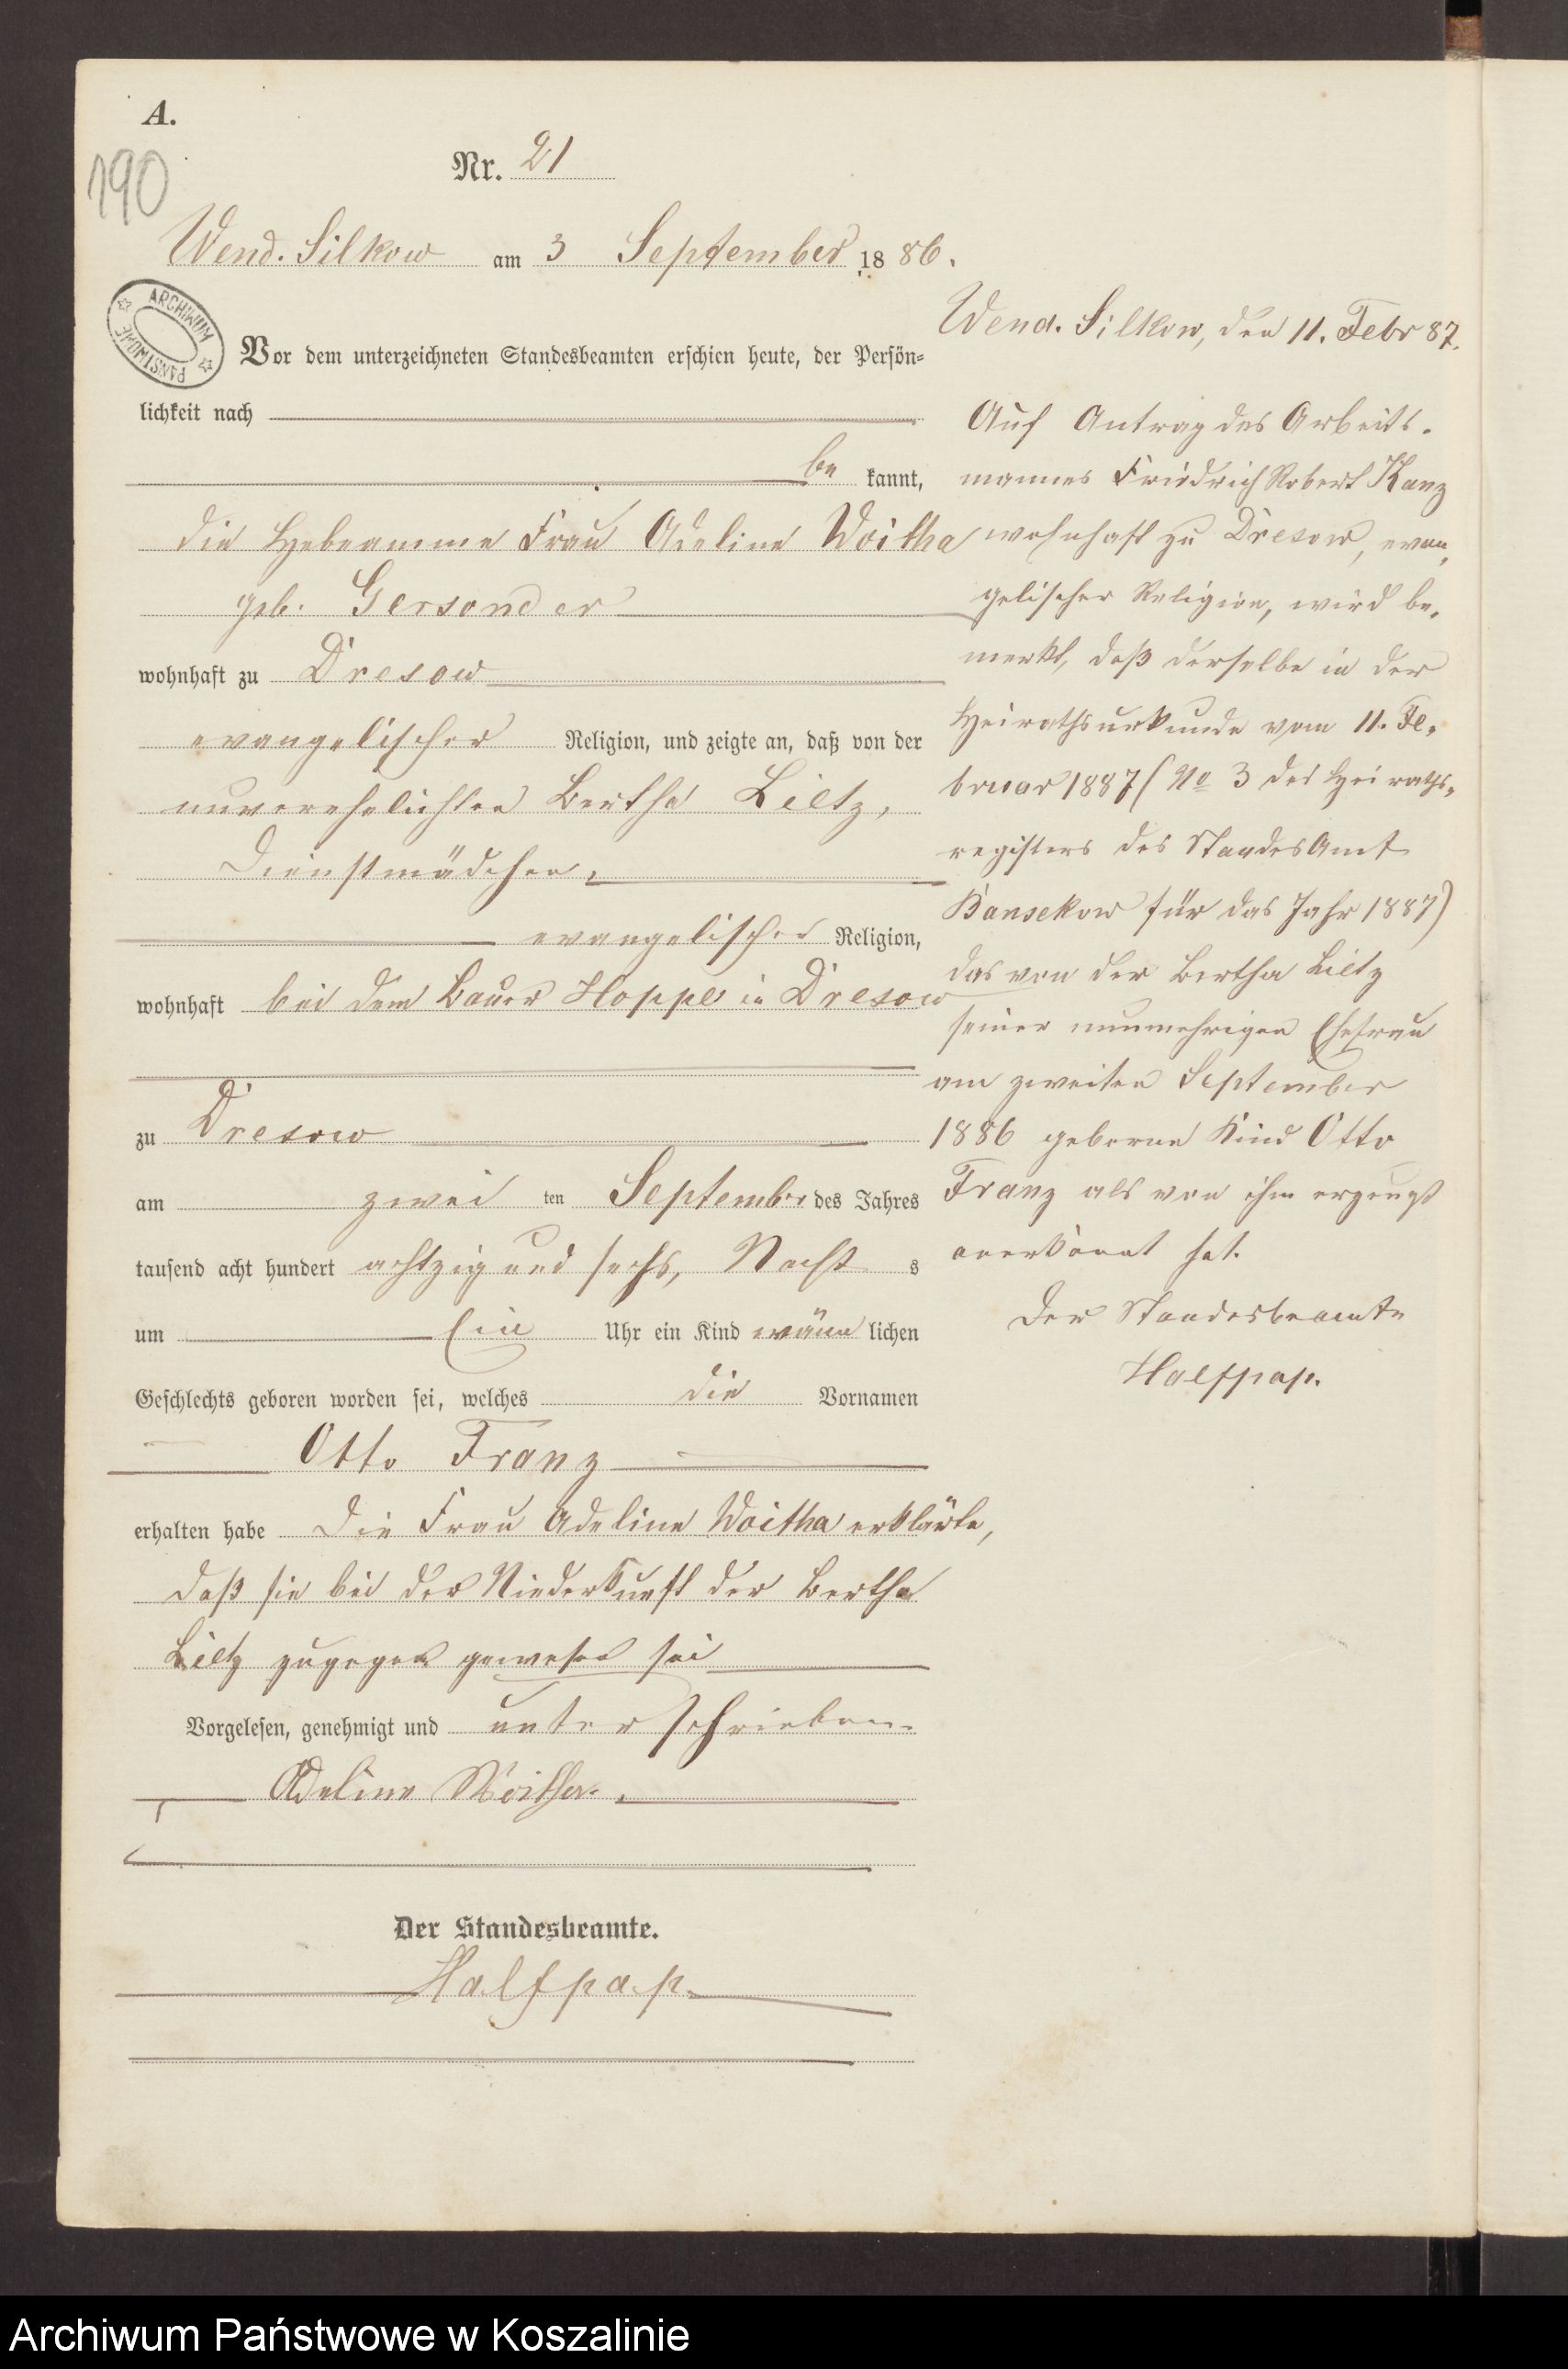 A.
190
Nr. 21
Wend. Silkow am 3 September 1886.
ARCHIWUM PAŃSTWOWE
Vor dem unterzeichneten Standesbeamten erschien heute, der Persön=
lichkeit nach
be kannt,
die Hebeamme Frau Adeline Woitha
geb. Gersonder
wohnhaft zu Dresow
evangelischer Religion, und zeigte an, daß von der
unverehelichten Bertha Lietz,
Dienstmädchen,
evangelischer Religion,
wohnhaft bei dem Bauer Hoppe in Dresow
zu Dresow
am zwei ten September des Jahres
tausend acht hundert achtzig und sechs, Nacht s
um Ein Uhr ein Kind männ lichen
Geschlechts geboren worden sei, welches die Vornamen
Otto Franz
erhalten habe Die Frau Adeline Woitha erklärte,
daß sie bei der Niederkunft der Bertha
Lietz zugegen gewesen sei
Vorgelesen, genehmigt und unterschrieben.
Adeline Woitha.
Der Standesbeamte.
Halfpap.
Wend. Silkow, den 11. Febr 87.
Auf Antrag des Arbeits-
mannes Friedrich Robert Kanz
wohnhaft zu Dresow, evan-
gelischer Religion, wird be-
merkt, daß derselbe in der
Heirathsurkunde vom 11. Fe-
bruar 1887 (No 3 des Heiraths-
registers des StandesAmt
Kansekow für das Jahr 1887)
das von der Bertha Lietz
seiner nunmehrigen Ehefrau
am zweiten September
1886 geborene Kind Otto
Franz als von ihm erzeugt
anerkannt hat.
Der Standesbeamte
Halfpap.
Archiwum Państwowe w Koszalinie